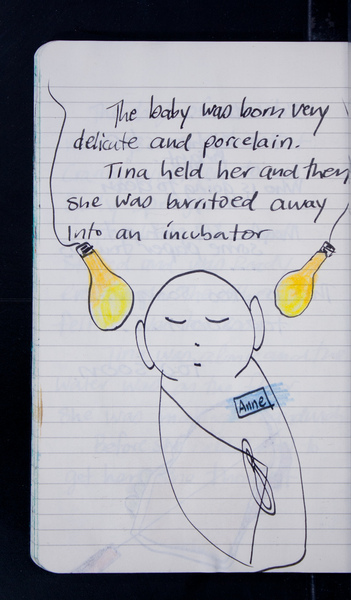 The baby was born very
delicate and porcelain.
Tina held her and then
she was burritoed away
Into an incubator
Anne